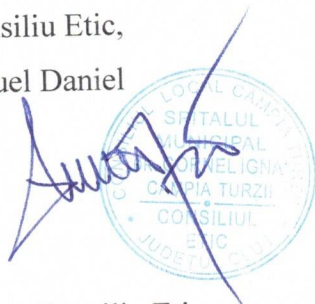 siliu Etic,
uel Daniel
CONSILIUL LOCAL CAMPIA TURZII
SPITALUL
MUNICIPAL
CORNEL IGNA
CAMPIA TURZII
CONSILIUL
ETIC
JUDETUL CLUJ